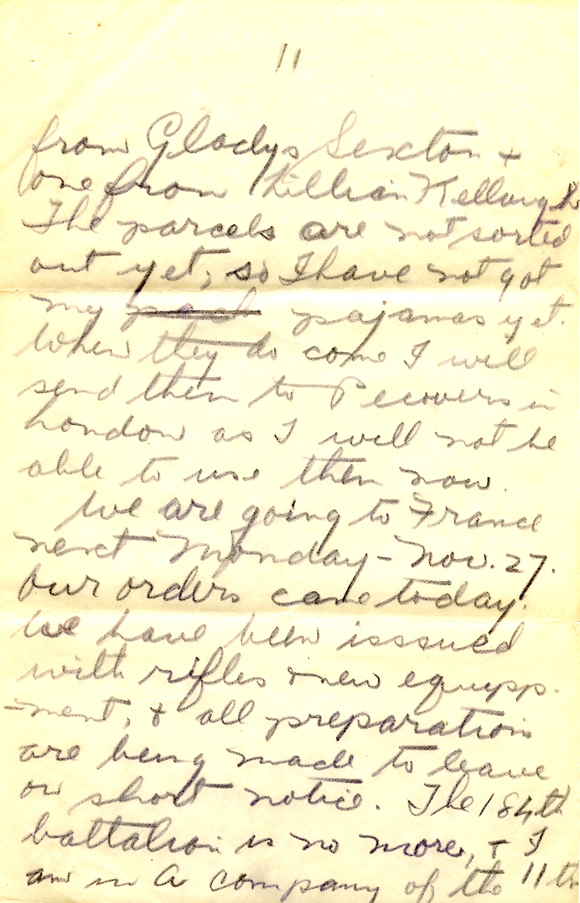 11
from Gladys Sexton +
one from Lillian Kellough
The parcels are not sorted
out yet, so I have not got
my pajamas yet.
When they do come I will
send them to Pecovers in
London as I will not be
able to use them now.
We are going to France
next Monday - Nov. 27.
Our orders came today.
We have been isssued
with rifles + new equipp-
-ment, + all preparation
are being made to leave
on short notice. The 184th
battalion is no more, + I
am in A company of the 11th